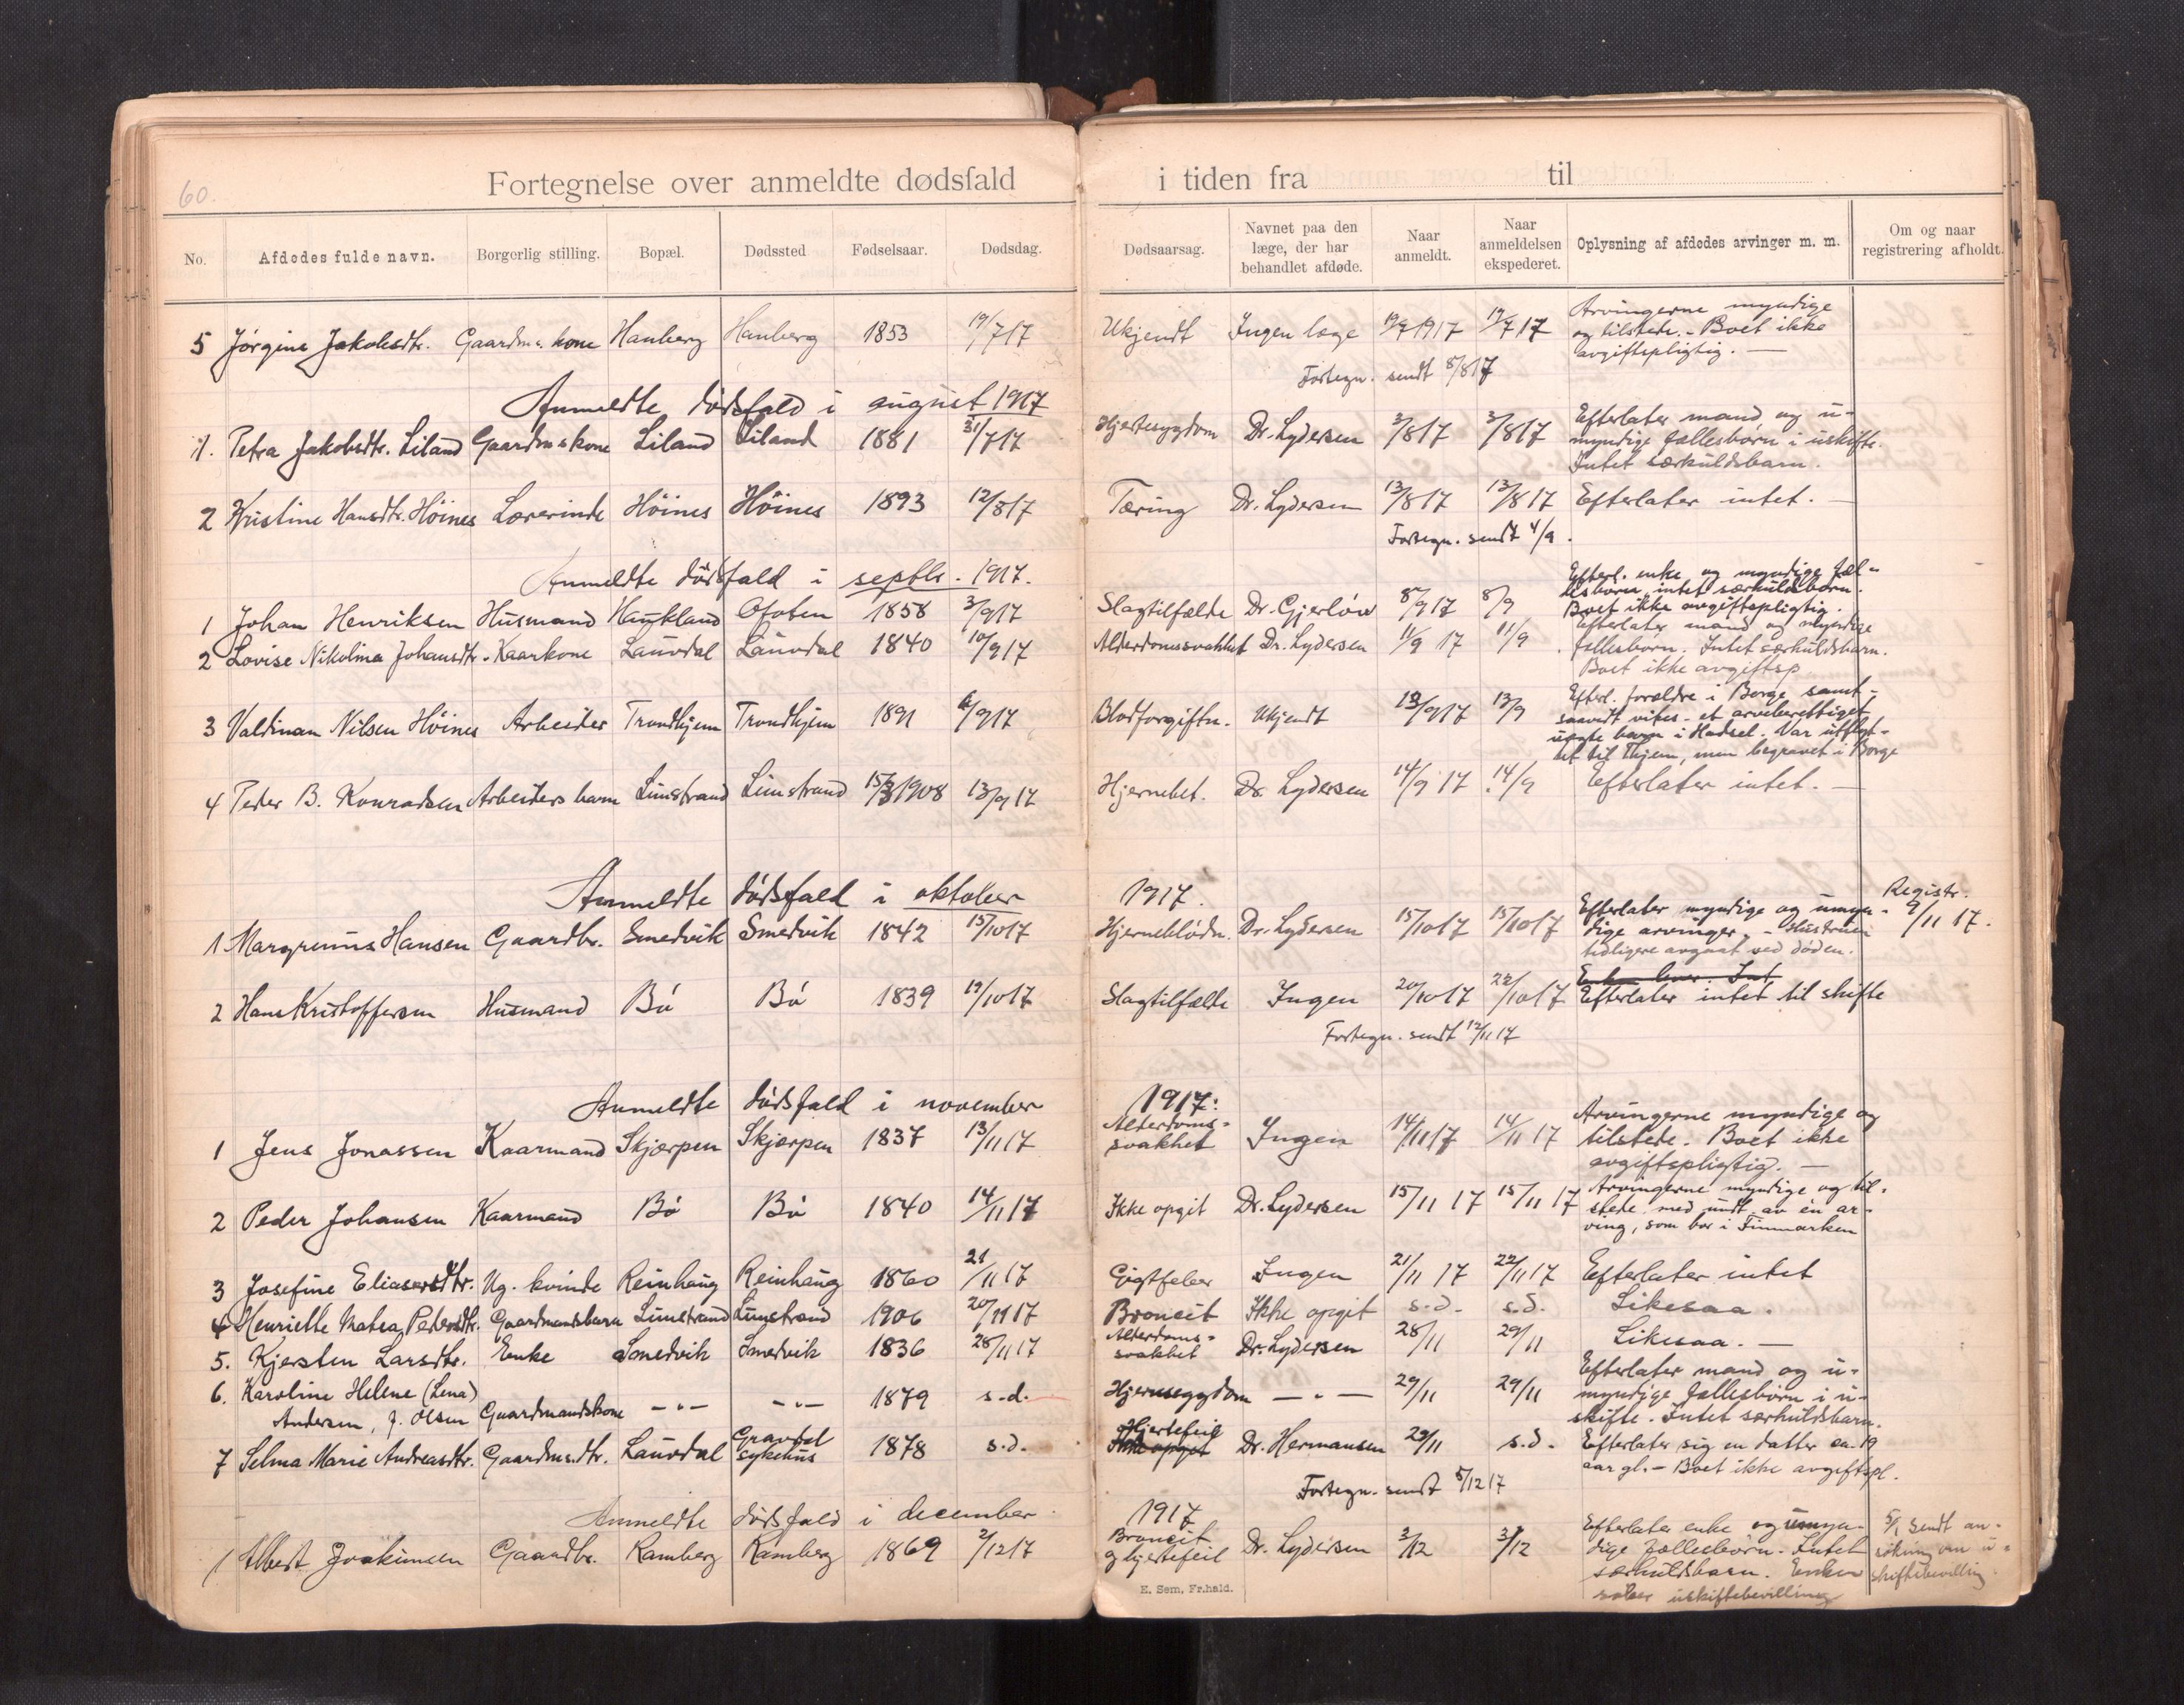 60.
Fortegnelse over anmeldte dødsfald i tiden fra til
No. Afdødes fulde navn. Borgerlig stilling. Bopæl. Dødssted Fødselsaar. Dødsdag. Dødsaarsag. Navnet paa den læge, der har behandlet afdøde. Naar anmeldt. Naar anmeldelsen ekspederet. Oplysning af afdødes arvinger m. m. Om og naar registrering afholdt.
5 Jørgine Jakobsdtr. Gaardm.s kone Hauberg Hauberg 1853 19/7 17 Ukjendt Ingen læge 19/7 1917 19/7 17 Arvingerne myndige
og tilstede. - Boet ikke
avgiftspligtig. —
Fortegn. sendt 8/8 17
Anmeldte dødsfald i august 1917
1. Petra Jakobsdtr. Liland Gaardm.s kone Liland Liland 1881 31/7 17 Hjertesygdom Dr. Lydersen 3/8 17 3/8 17 Efterlater mand og u-
myndige fællesbørn i uskifte.
Intet særkuldsbarn.
2 Kristine Hansdtr. Höines Lærerinde Höines Höines 1893 12/8 17 Tæring Dr. Lydersen 13/8 17 13/8 17 Efterlater intet. —
Fortegn. sendt 4/9.
Anmeldte dødsfald i septbr. 1917.
1 Johan Henriksen Husmand Haukland Ofoten 1858 3/9 17 Slagtilfælde Dr. Gjerløw 8/9 17 8/9 Efterl. enke og myndige fæl-
lesbørn, intet særkuldsbørn.
Boet ikke avgiftspligtig.
2 Lovise Nikolina Johansdtr. Kaarkone Lauvdal Lauvdal 1840 10/9 17 Alderdomssvakhet Dr. Lydersen 11/9 17 11/9 Efterlater mand og myndige
fællesbørn. Intet særkuldsbarn.
Boet ikke avgiftsp.
3 Valdimar Nilsen Höines Arbeider Trondhjem Trondhjem 1891 6/9 17 Blodforgiftn. Ukjendt 13/9 17 13/9 Efterl. forældre i Borge samt -
saavidt vites - et arveberettiget
uegte barn i Hadsel. Var utflyt-
tet til Thjem, men begravet i Borge
4 Peder B. Konradsen Arbeiders barn Limstrand Limstrand 15/3 1908 13/9 17 Hjernebet. Dr. Lydersen 14/9 17 14/9 Efterlater intet. —
Anmeldte dødsfald i oktober 1917.
1 Margrenus Hansen Gaardbr. Smedvik Smedvik 1842 15/10 17 Hjerneblødn. Dr. Lydersen 15/10 17 15/10 17 Efterlater myndige og umyn- Registr. 9/11 17.
dige arvinger. - Hustruen
tidligere avgaat ved døden.
2 Hans Kristoffersen Husmand Bø Bø 1839 19/10 17 Slagtilfælde Ingen 20/10 17 22/10 17 Enke lever. Int
Efterlater intet til skifte
Fortegn. sendt 12/11 17
Anmeldte dødsfald i november 1917:
1 Jens Jonassen Kaarmand Skjærpen Skjærpen 1837 13/11 17 Alderdoms-
svakhet Ingen 14/11 17 14/11 17 Arvingerne myndige og
tilstede. Boet ikke
avgiftspligtig. —
2 Peder Johansen Kaarmand Bø Bø 1840 14/11 17 Ikke opgit Dr. Lydersen 15/11 17 15/11 17 Arvingerne myndige og til-
stede med undt. av én ar-
ving, som bor i Finmarken
3 Josefine Eliasersdtr. Ug. kvinde Reinhaug Reinhaug 1860 21/11 17 Gigtfeber Ingen 21/11 17 22/11 17 Efterlater intet
4 Henriette Matea Pedersdtr. Gaardmandsbarn Limstrand Limstrand 1906 20/11 17 Broncit Ikke opgit s.d. s.d. Likesaa.
5. Kjersten Larsdtr. Enke Smedvik Smedvik 1836 28/11 17 Alderdoms-
svakhet Dr. Lydersen 28/11 29/11 Likesaa. —
6. Karoline Helene (Lena)
Andersen, f. Olsen Gaardmandskone — " — — " — 1879 s.d. Hjernesygdom — " — 29/11 29/11 Efterlater mand og u-
myndige fællesbørn i u-
skifte. Intet særkuldsbarn.
7 Selma Marie Andreasdtr. Gaardm.sdtr. Lauvdal Gravdal
sykehus 1878 s.d. Hjertefeil
Ikke opgit Dr. Hermansen 29/11 s.d. Efterlater sig en datter ca. 19
aar gl. - Boet ikke avgiftspl.
Fortegn. sendt 5/12 17
Anmeldte dødsfald i december 1917
1 Albert Joakimsen Gaardbr. Ramberg Ramberg 1869 2/12 17 Broncit
og hjertefeil Dr. Lydersen 3/12 3/12 Efterlater enke og umyn-
dige fællesbørn. Intet
særkuldsbarn. Enken
søker uskiftebevilling
5/1 sendt an-
søkning om u-
skiftebevilling
E. Sem, Fr.hald.